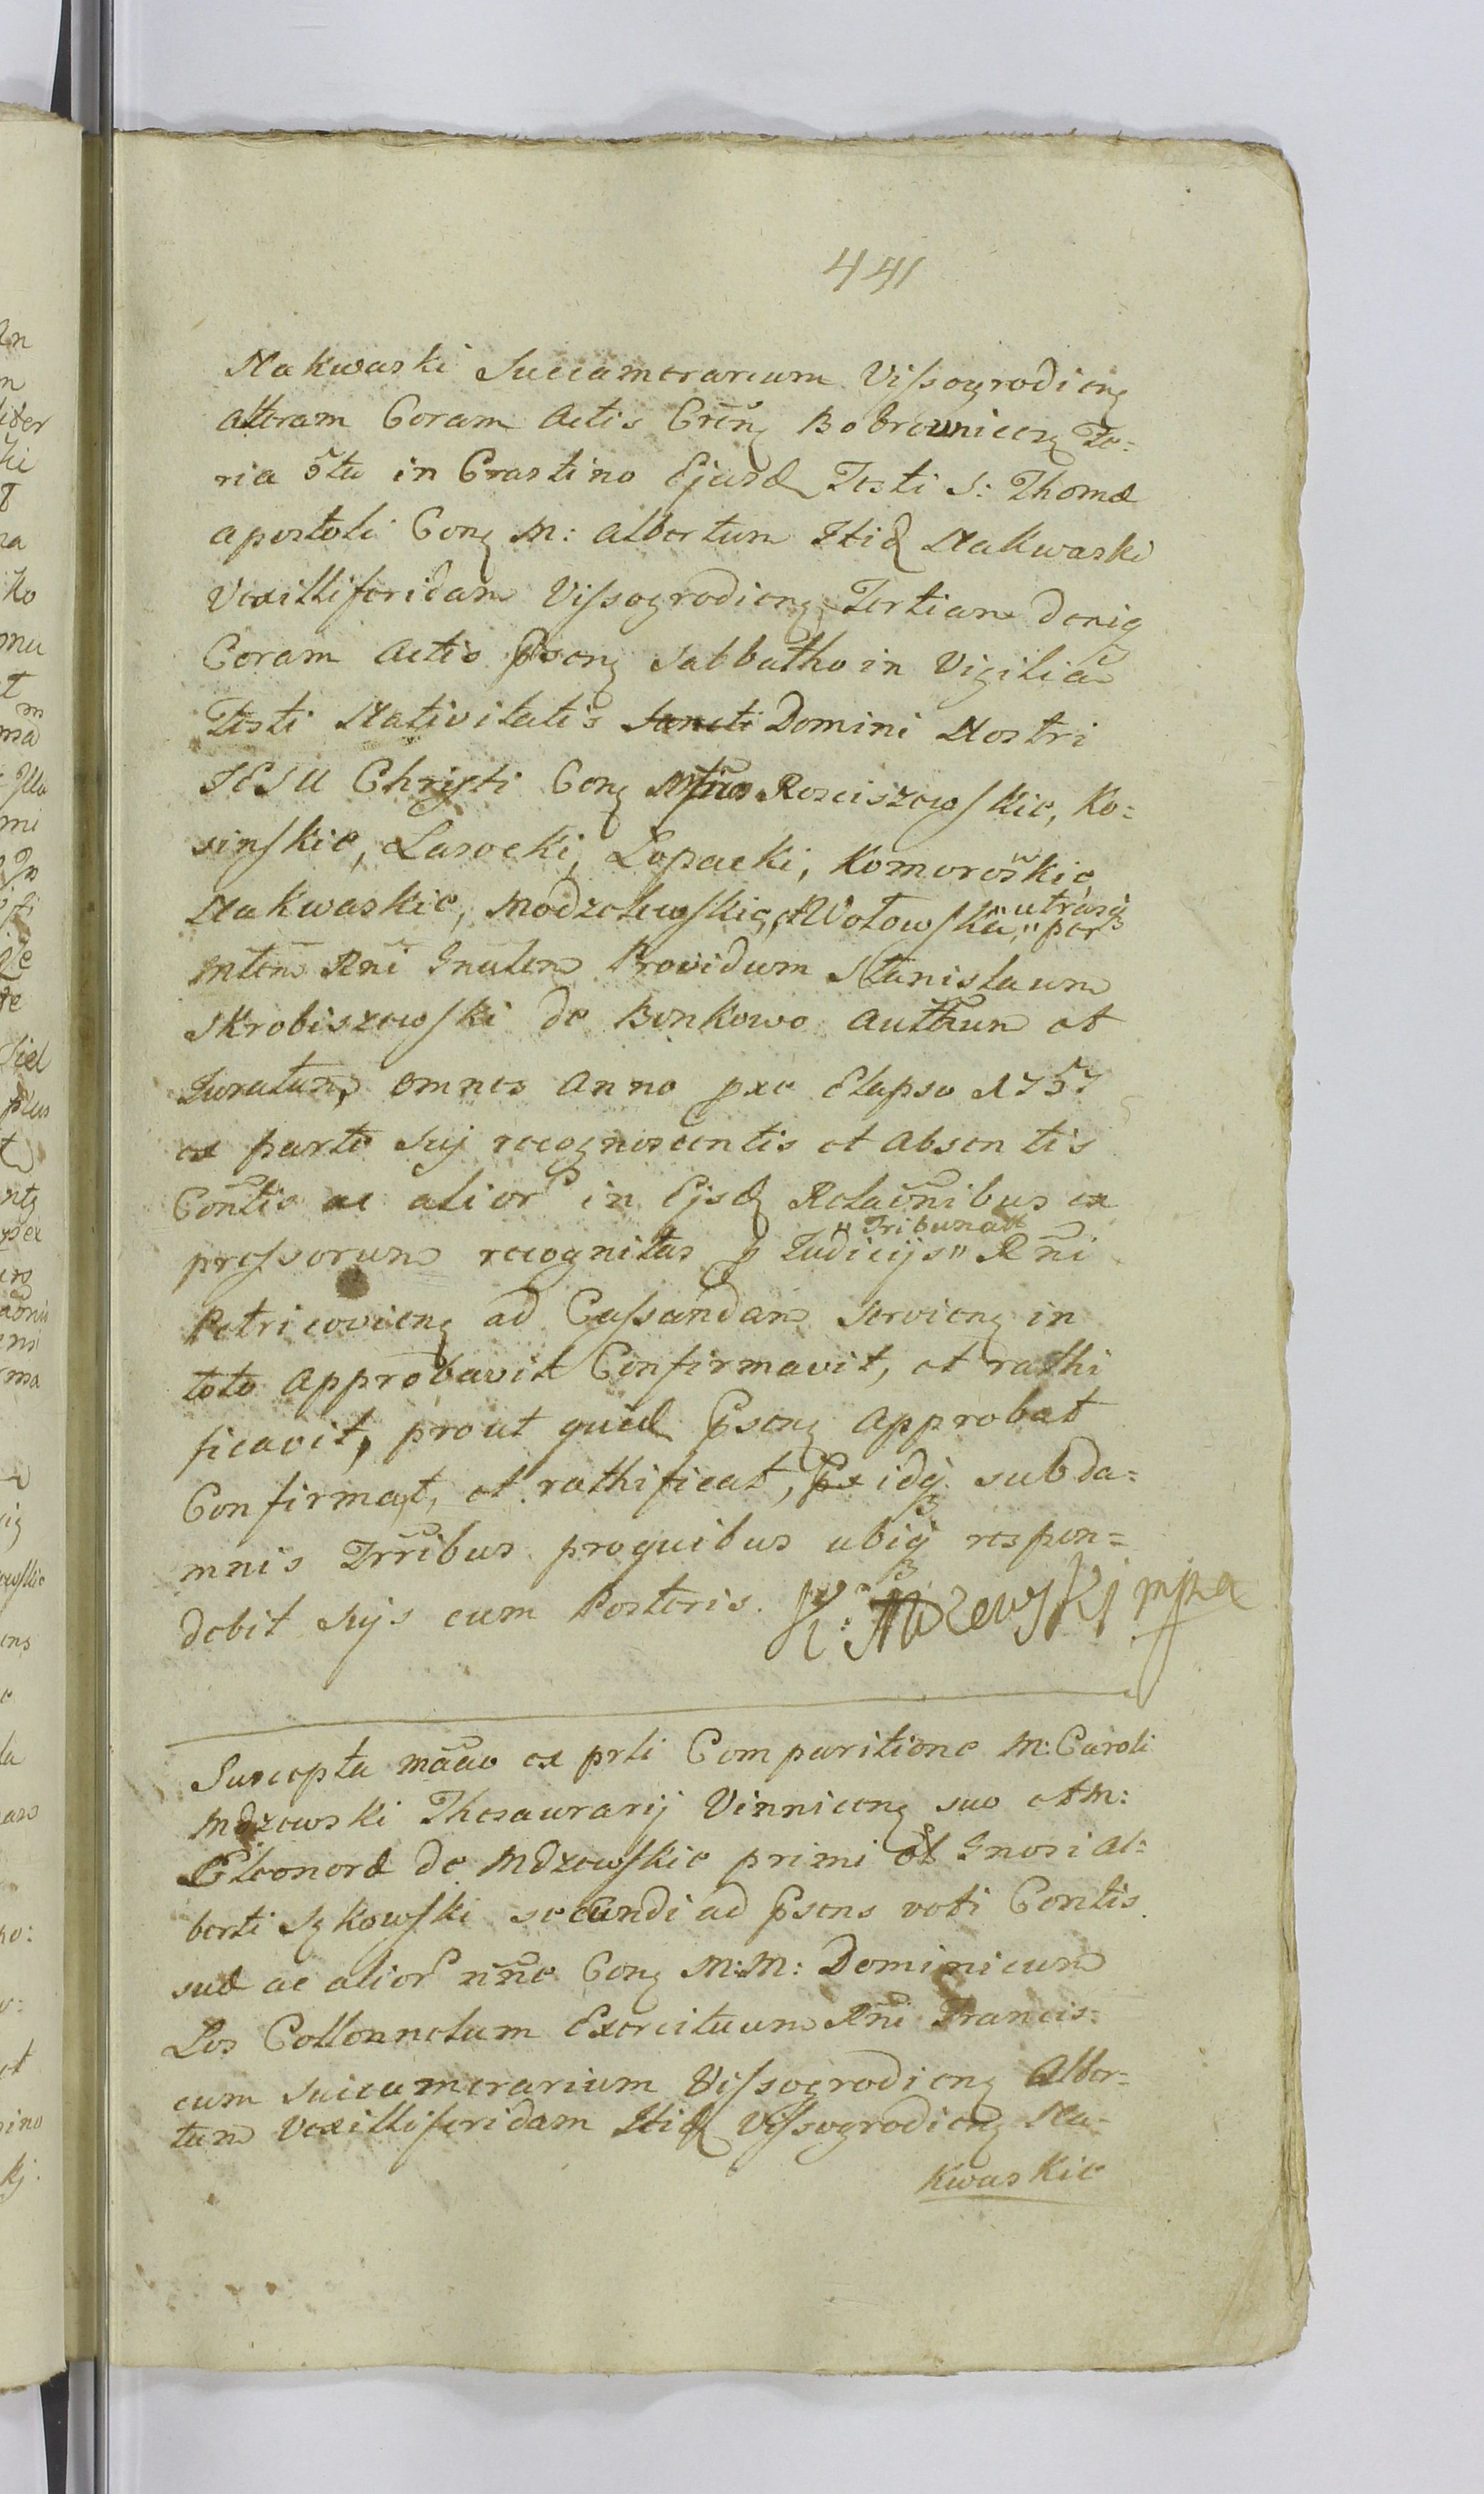 441
Nakwaski Succamerarium Vissogrodieng
alteram Coram Actis Cren̄g Bobrownicen̨ Fe=
ria 5ta in Crastino Ejusd Festi S: Thomæ
apostoli Cong M: Albertum Itid Nakwaski
Vexilliferidam Vissogrodieng Tertiam deniq
Coram Actis Pseng Sabbatho in Vigilia
Festi Nativitatis Sancti Domini Nostri
JESU Christi Cong Rosciszewskie, Ko=
sinskie, Lasocki, Lopacki, Komoroskie
Nakwaskie, Modzelewskie, et Wołowską, "utrasq"
per
Mten Rni Gnalen Providum Stanislaum
Skrobiszewski de Bonkowo Authum et
Juratum, omnes Anno pxe Elapso 1757
ex parte sij recognoscentis et Absentis
Contis ac alior in Ejsd Relaōnibus ex
pressorum recognitas p Judicijs "Tribunalt" Rni
Petricovieng ad Cassandam servieng in
toto Approbavit Confirmavit, et rathi
ficavit, prout quid Pseng Approbat
Confirmat, et rathificat, Ps idq. sub da=
mnis Trribus proquibus ubiq respon=
debit sijs cum Posteris. K: Mdzewski mpa
Suscepta māāo ex prti Comparitione M: Caroli
Mdzewski Thesaurarij Vinniceng suo et M:
Eleonoræ de Mdzewskie primi et Gnosi Al=
berti Sykowski secundi ad Psens voti Contis
suæ ac alior nn̄e Cong M:M: Dominicum
Les Collonnelum Exercituum Rni Francis=
cum Succamerarium Vissogrodieng Alber=
tum Vexilliferidam Itid Vissogrodieng Na=
kwaskie